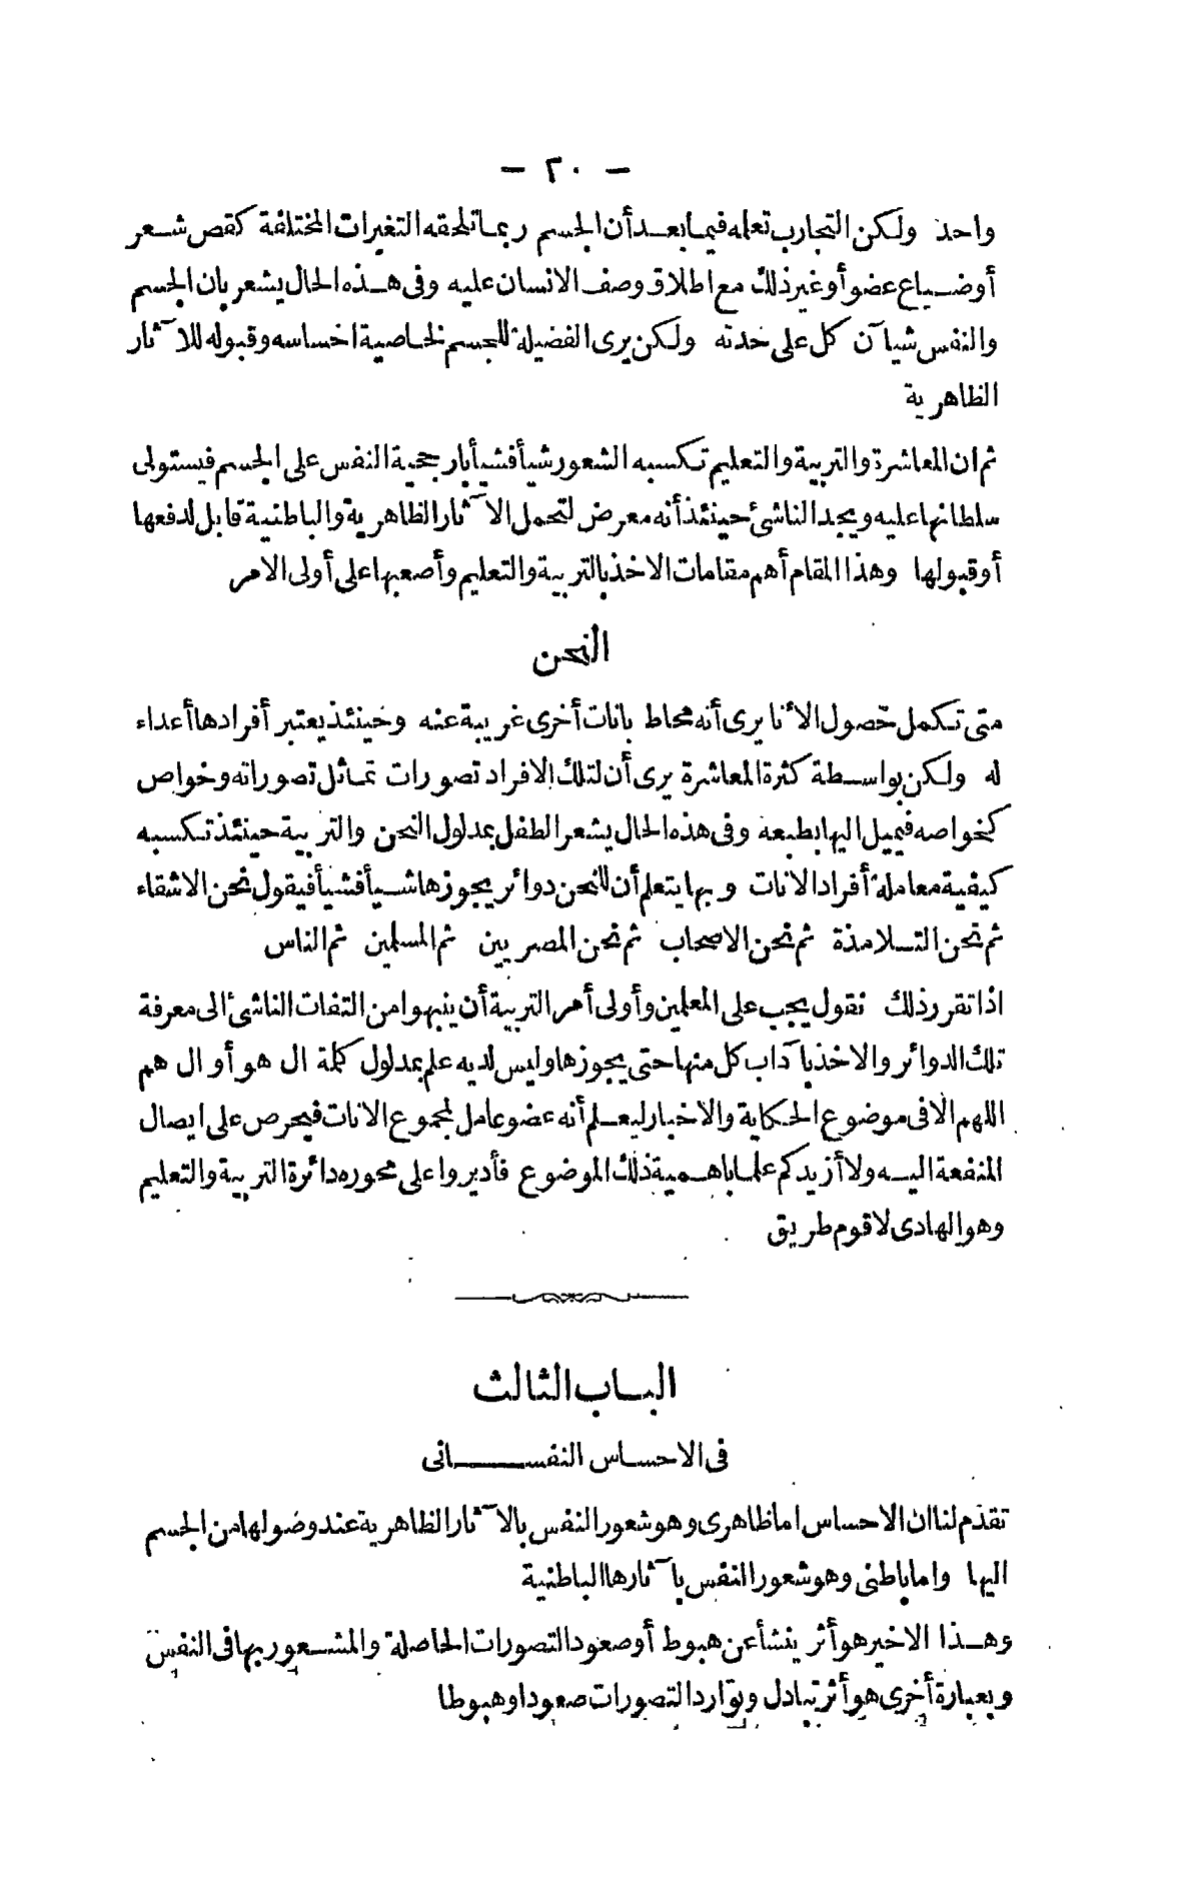 — ٢٠ —
واحد ولكن التجارب تعلمه فيما بعد أن الجسم ربما تلحقه التغيرات المختلفة كقص شعر
أو ضياع عضو أو غير ذلك مع اطلاق وصف الانسان عليه وفى هذه الحال يشعر بان الجسم
والنفس شيآن كل على حدته ولكن يرى الفضيلة للجسم لخاصية احساسه وقبوله للآثار
الظاهرية
ثم ان المعاشرة والتربية والتعليم تكسبه الشعور شيأ فشيأ بارجحية النفس على الجسم فيستولى
سلطانها عليه ويجد الناشئ حينئذ أنه معرض لتحمل الآثار الظاهرية والباطنية قابل لدفعها
أو قبولها وهذا المقام أهم مقامات الاخذ بالتربية والتعليم وأصعبها على أولى الامر
النحن
متى تكمل حصول الأنا يرى أنه محاط بانات أخرى غريبة عنه وحينئذ يعتبر أفرادها أعداء
له ولكن بواسطة كثرة المعاشرة يرى أن لتلك الافراد تصورات تماثل تصوراته وخواص
كخواصه فيميل اليها بطبعه وفى هذه الحال يشعر الطفل بمدلول النحن والتربية حينئذ تكسبه
كيفية معاملة أفراد الانات وبها يتعلم أن للنحن دوائر يجوزها شيأ فشيأ فيقول نحن الاشقاء
ثم نحن التلامذة ثم نحن الاصحاب ثم نحن المصريين ثم المسلمين ثم الناس
اذا تقرر ذلك نقول يجب على المعلمين وأولى أمر التربية أن ينبهوا من التفات الناشئ الى معرفة
تلك الدوائر والاخذ بآداب كل منها حتى يجوزها وليس لديه علم بمدلول كلمة ال هو أو ال هم
اللهم الا فى موضوع الحكاية والاخبار ليعلم أنه عضو عامل لمجموع الانات فيحرص على ايصال
المنفعة اليه ولا أزيدكم علما باهمية ذلك الموضوع فأديروا على محوره دائرة التربية والتعليم
وهو الهادى لاقوم طريق
الباب الثالث
فى الاحساس النفسانى
تقدم لنا ان الاحساس اما ظاهرى وهو شعور النفس بالآثار الظاهرية عند وصولها من الجسم
اليها واما باطنى وهو شعور النفس بآثارها الباطنية
وهذا الاخير هو أثر ينشأ عن هبوط أو صعود التصورات الحاصلة والمشعور بها فى النفس
وبعبارة أخرى هو أثر تبادل وتوارد التصورات صعودا وهبوطا